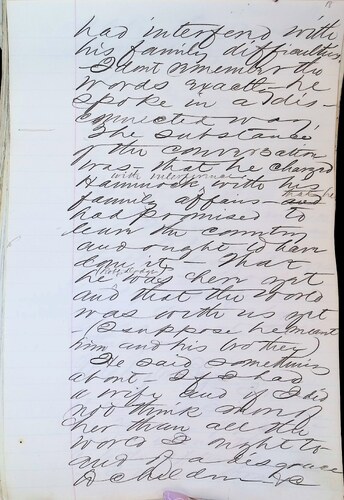 18
had interfered with
his family difficulties
- I dont remember the
words exactly - he
spoke in a dis-
connected way
The substance
of the conversation
was - that he charged
with interference
Hammock with his
family affairs - and
that he
had promised to
leave the country
and ought to have
done it - that
he was here yet
and that the world
was with us yet
- (I suppose he meant
him and his brother)
He said something
about - If I had
a wife and if I did
not think more of
her than all the
world I ought to
and if a disgrace
to children